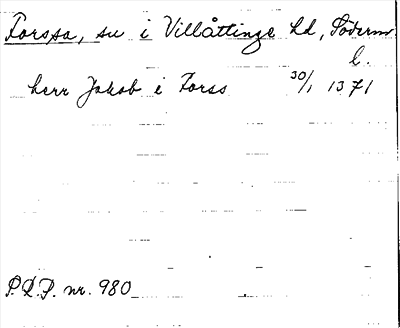 Forssa, su i Villåttinge hd, Söderm.
l.
herr Jakob i Forss 30/1 1371
P.R.P. nr. 980